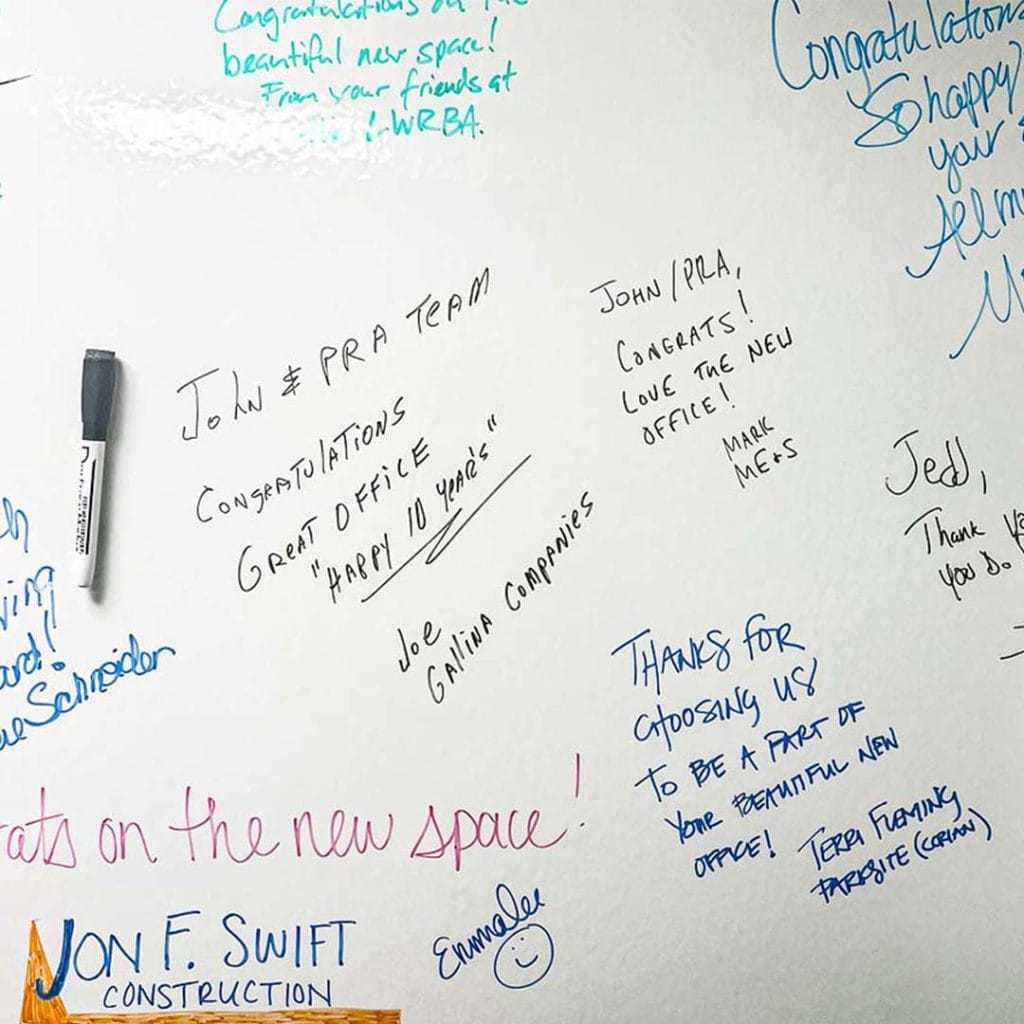 Congratulations on the
beautiful new space!
From your friends at
WRBA.
Congratulations
So happy
your
All my
JOHN & PRA TEAM
CONGRATULATIONS
GREAT OFFICE
"HAPPY 10 YEAR'S"
Joe
GALLINA COMPANIES
JOHN/PRA,
CONGRATS!
LOVE THE NEW
OFFICE!
MARK
ME+S
Jedd,
Thank
you Do
Schneider
THANKS FOR
CHOOSING US
TO BE A PART OF
YOUR BEAUTIFUL NEW
OFFICE!
TERRI FLEMING
PARKSITE (CORIAN)
ats on the new space!
JON F. SWIFT
CONSTRUCTION
Emmalee